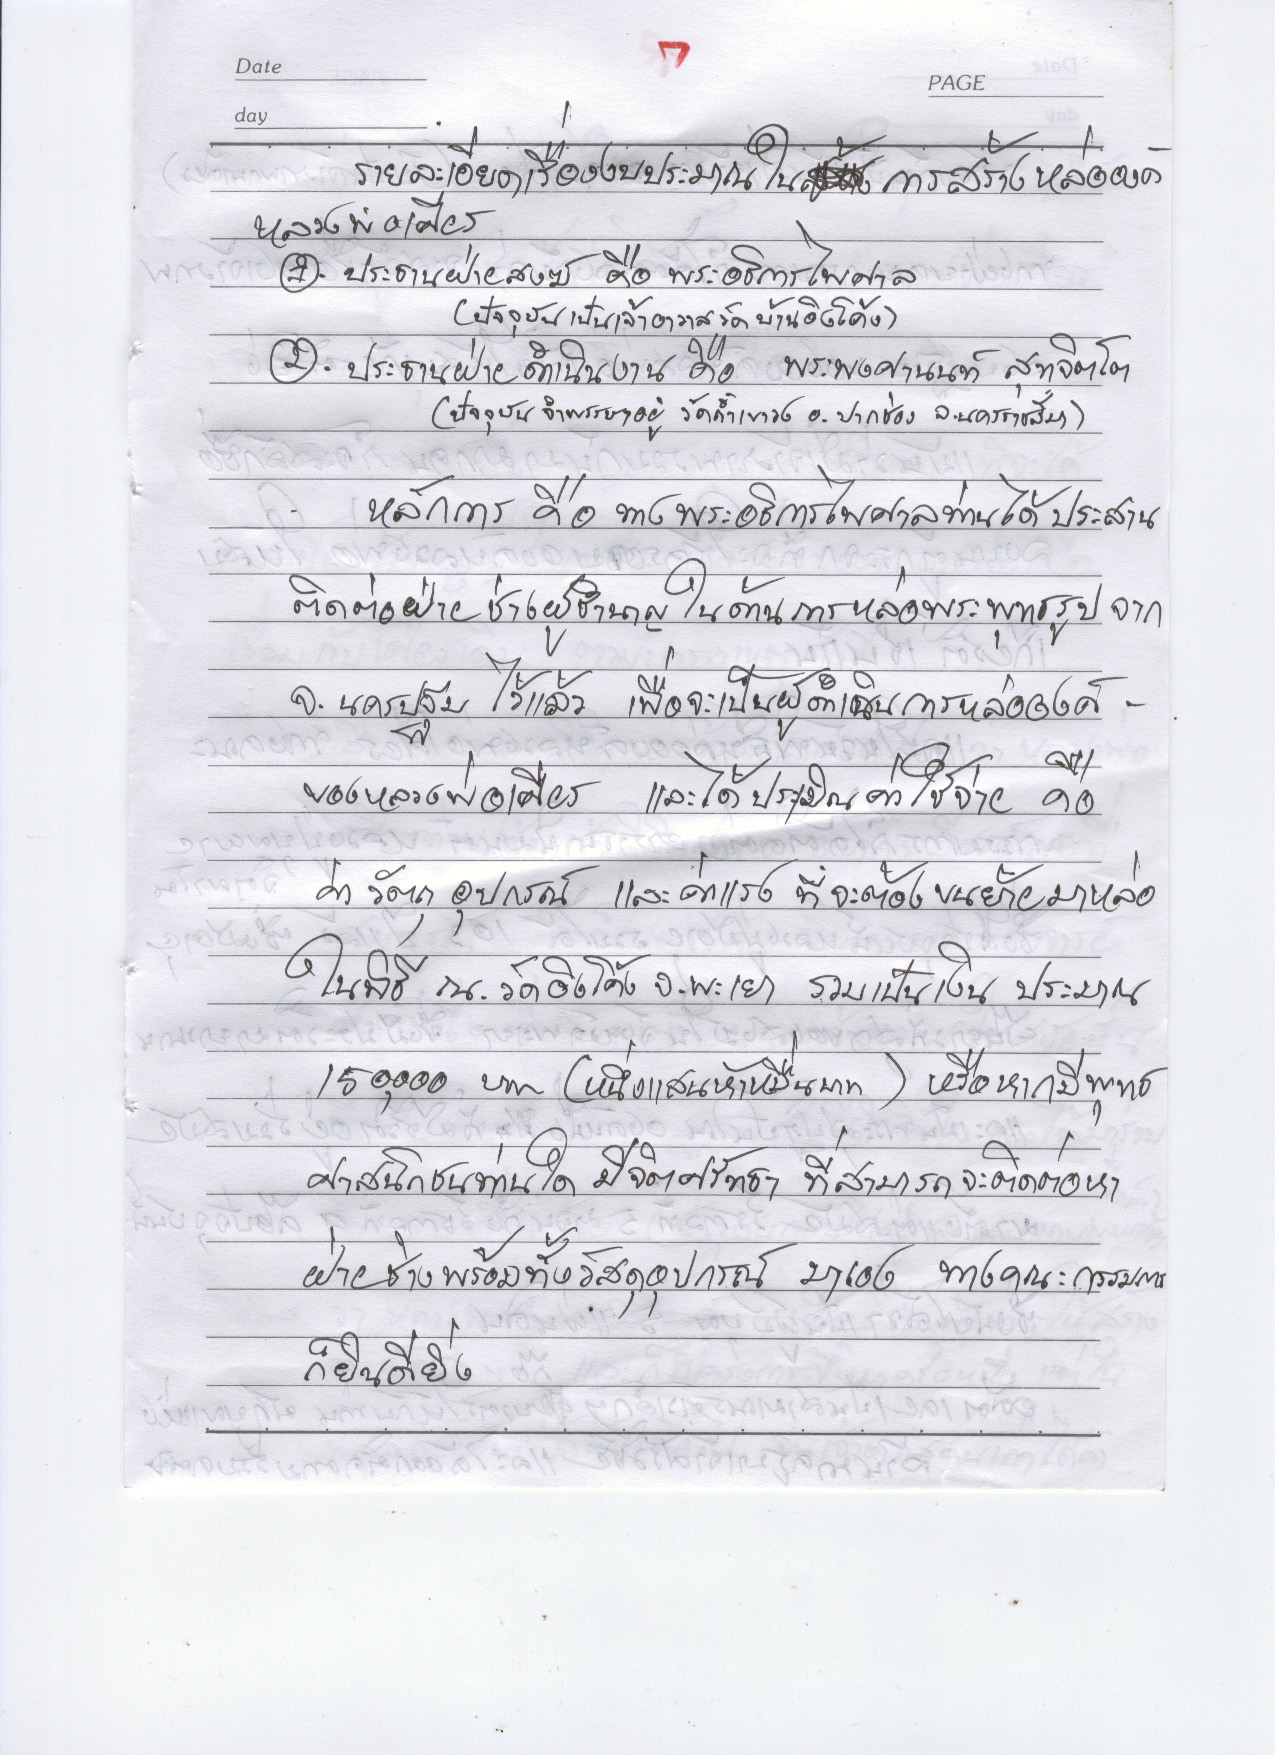 Date
PAGE
day
รายละเอียดเรื่องงบประมาณใน การสร้างหล่อองค์
หลวงพ่อเศียร
๑. ประธานฝ่ายสงฆ์ คือ พระอธิการไพศาล
(ปัจจุบันเป็นเจ้าอาวาสวัดบ้านอิงโค้ง)
๒. ประธานฝ่ายดำเนินงาน คือ พระพงศานนท์ สุทจิตโต
(ปัจจุบัน จำพรรษาอยู่ วัดถ้ำเขาวง อ. ปากช่อง จ.นครราชสีมา)
หลักการ คือ ทางพระอธิการไพศาลท่านได้ ประสาน
ติดต่อฝ่าย ช่างผู้ชำนาญ ในด้านการหล่อพระพุทธรูป จาก
จ. นครปฐม ไว้แล้ว เพื่อจะเป็นผู้ดำเนินการหล่อองค์ -
ของหลวงพ่อเศียร และได้ประเมินค่าใช้จ่าย คือ
ค่าวัตถุ อุปกรณ์ และค่าแรง ที่จะต้องขนย้ายมาหล่อ
ในพิธี ณ. วัดอิงโค้ง จ.พะเยา รวมเป็นเงิน ประมาณ
150,000 บาท (หนึ่งแสนห้าหมื่นบาท) หรือหากมีพุทธ
ศาสนิกชนท่านใด มีจิตศรัทธา ที่สามารถจะติดต่อหา
ฝ่ายช่างพร้อมทั้งวัสดุอุปกรณ์ มาเอง ทางคณะกรรมการ
ก็ยินดียิ่ง